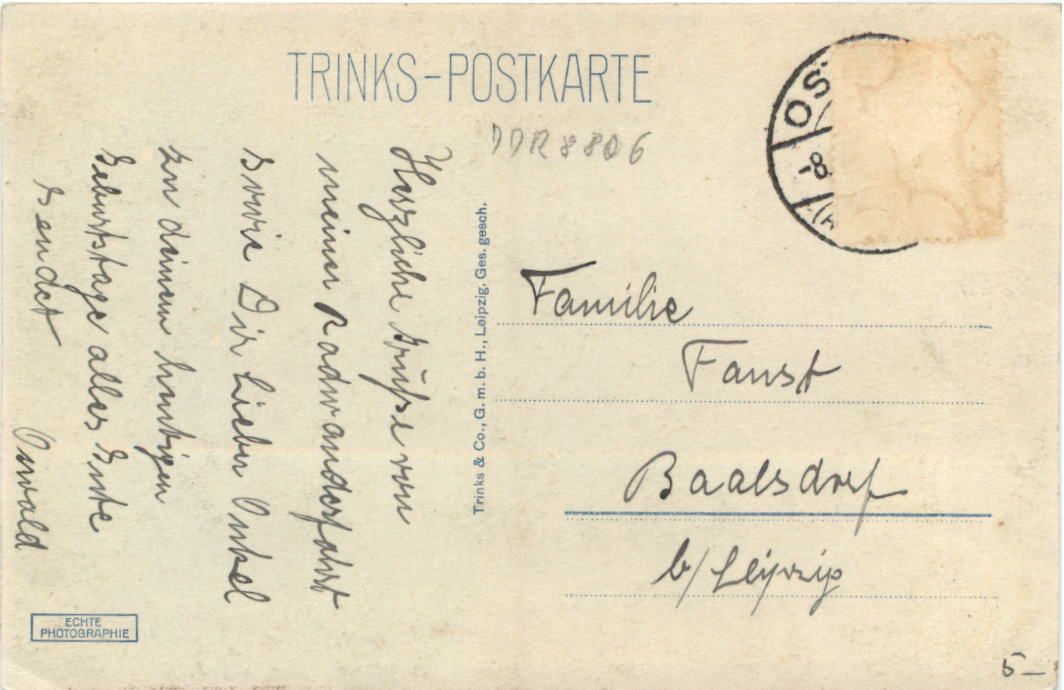 TRINKS-POSTKARTE
DDR 8806
OS
-8.
Herzliche Grüße von
meiner Radwanderfahrt
sowie Dir lieber Onkel
zu deinem heutigen
Geburtstage alles Gute
sendet
Oswald
Trinks & Co., G. m. b. H., Leipzig. Ges. gesch.
Familie
Faust
Baalsdorf
b/Leipzig
ECHTE
PHOTOGRAPHIE
5-